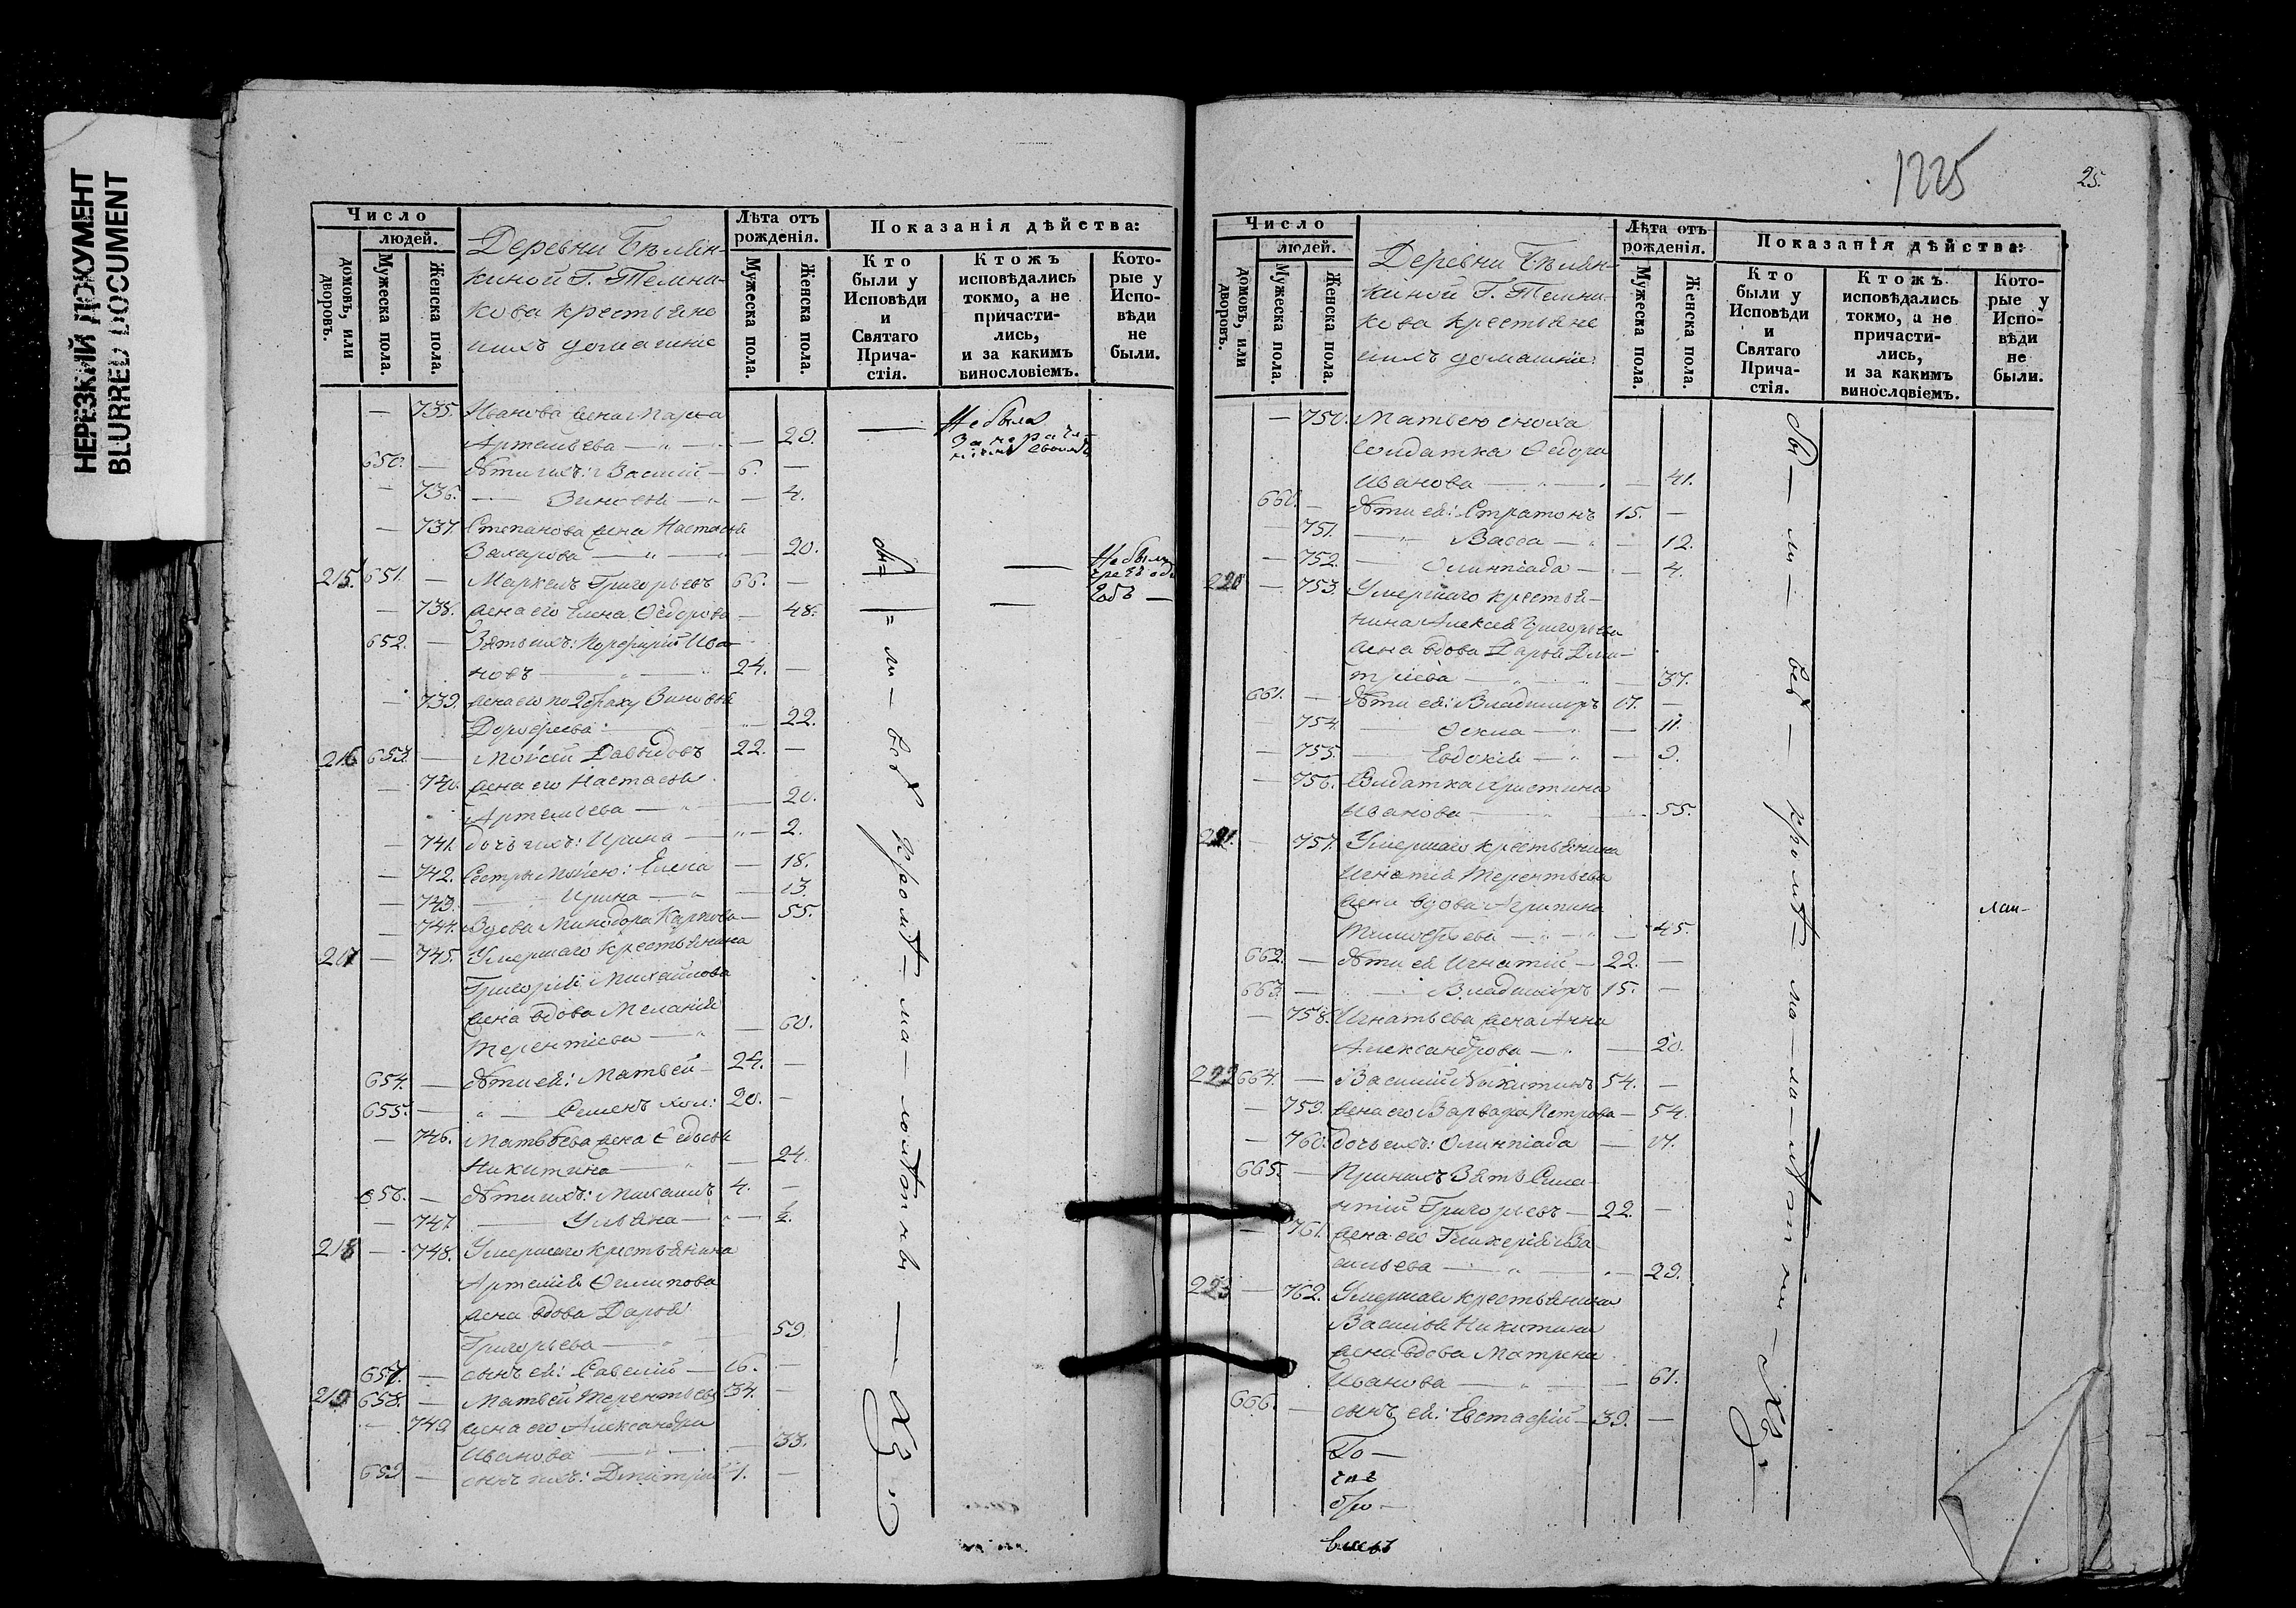 НЕРЕЗКИЙ ДОКУМЕНТ
BLURRED DOCUMENT
Число
людей.
домовъ, или дворовъ.
Мужеска пола.
Женска пола.
Деревни Бѣлян-
киной Г. Темни-
кова крестьяне
ихъ домашніе
Лѣта отъ рожденія.
Мужеска пола.
Женска пола.
Показанія дѣйства:
Кто были у Исповѣди и Святаго Прича- стія.
Ктожъ исповѣдались токмо, а не причасти- лись, и за какимъ винословіемъ.
Кото- рые у Испо- вѣди не были.
— 735. Иванова жена Марѳа
Артемьева — — 29. — Не была
650. — Дѣти ихъ: Василій — 6. —
— 736. — Зиновья — — 4.
— 737. Степанова жена Настасья
Захарова — — 20.
215. 651. — Маркелъ Григорьевъ 66. — Не были
годъ —
— 738. жена его Елена Ѳедорова — 48.
652. — Зять ихъ: Порфирій Ива-
новъ — 24. —
— 739. жена его по 2 браку Зиновья
Дороѳеева — 22.
216 653. — Моѵсій Давыдовъ 22. —
— 740. жена его Настасья
Артемьева — — 20.
— 741. дочь ихъ: Ирина — — 2.
— 742. Сестры Моѵсею: Елена — 18.
— 743. — Ирина — — 13.
— 744. Вдова Минодора Карпова — 55.
217 — 745. Умершаго крестьянина
Григорія Михайлова
жена вдова Меланія
Терентіева — — 60.
654. — Дѣти ей: Матвей — 24. —
655. — Семенъ хол: 20. —
— 746. Матвѣева жена Ѳедосья
Никитина — — 24.
656. — Дѣти ихъ: Михаилъ 4. —
— 747. — Ульяна — — ½.
218 — 748. Умершаго крестьянина
Артемія Филипова
жена вдова Дарья
Григорьева — 59
657. — сынъ ей: Савелій — 16. —
219 658. — Матвей Терентьевъ 34. —
— 749 жена его Александра
Иванова — 33.
659 — сынъ ихъ: Димитрій 1. —
бы = ли — всѣ кромѣ — ма — лолѣтнъ
1225
25.
Число
людей.
домовъ, или дворовъ.
Мужеска пола.
Женска пола.
Деревни Бѣлян-
киной Г. Темни-
кова крестьяне
ихъ домашніе:
Лѣта отъ рожденія.
Мужеска пола.
Женска пола.
Показанія дѣйства:
Кто были у Исповѣди и Святаго Прича- стія.
Ктожъ исповѣдались токмо, а не причасти- лись, и за какимъ винословіемъ.
Кото- рые у Испо- вѣди не были.
— 750. Матвею сноха
Солдатка Ѳедора
Иванова — — 41.
660. — Дѣти ей: Стратонъ 15. —
— 751. — Васса — — 12.
— 752. — Олимпіада — — 4.
220 — 753. Умершаго крестья-
нина Алексея Григорьева
жена вдова Дарья Дми-
тріева — — 37.
661. — Дѣти ей: Владимиръ 17. —
— 754. — Ѳекла — — 11.
— 755. — Евдокія — — 9.
— 756. Солдатка Христина
Иванова — — 55.
221. — 757. Умершаго крестьянина
Игнатія Терентьева
жена вдова Агрипина
Тимоѳеева — — 45.
662. — Дѣти ей Игнатій — 22. —
663. — Владимиръ 15. —
— 758. Игнатьева жена Анна
Александрова — — 20.
222 664. — Василій Никитинъ 54. —
— 759. жена его Варвара Петрова — 54.
— 760. дочь ихъ: Олимпіада — 17.
665. — Принихъ Зять
Григорьевъ — 22. —
— 761. жена его Гликерія Ва-
сильева — — 29.
223 — 762. Умершаго крестьянина
Василья Никитина
жена вдова Матрена
Иванова — — 61.
666. — сынъ ей: Евстафій — 39. —
бы — ли — всѣ — кромѣ = ма — ло — лѣтнъ